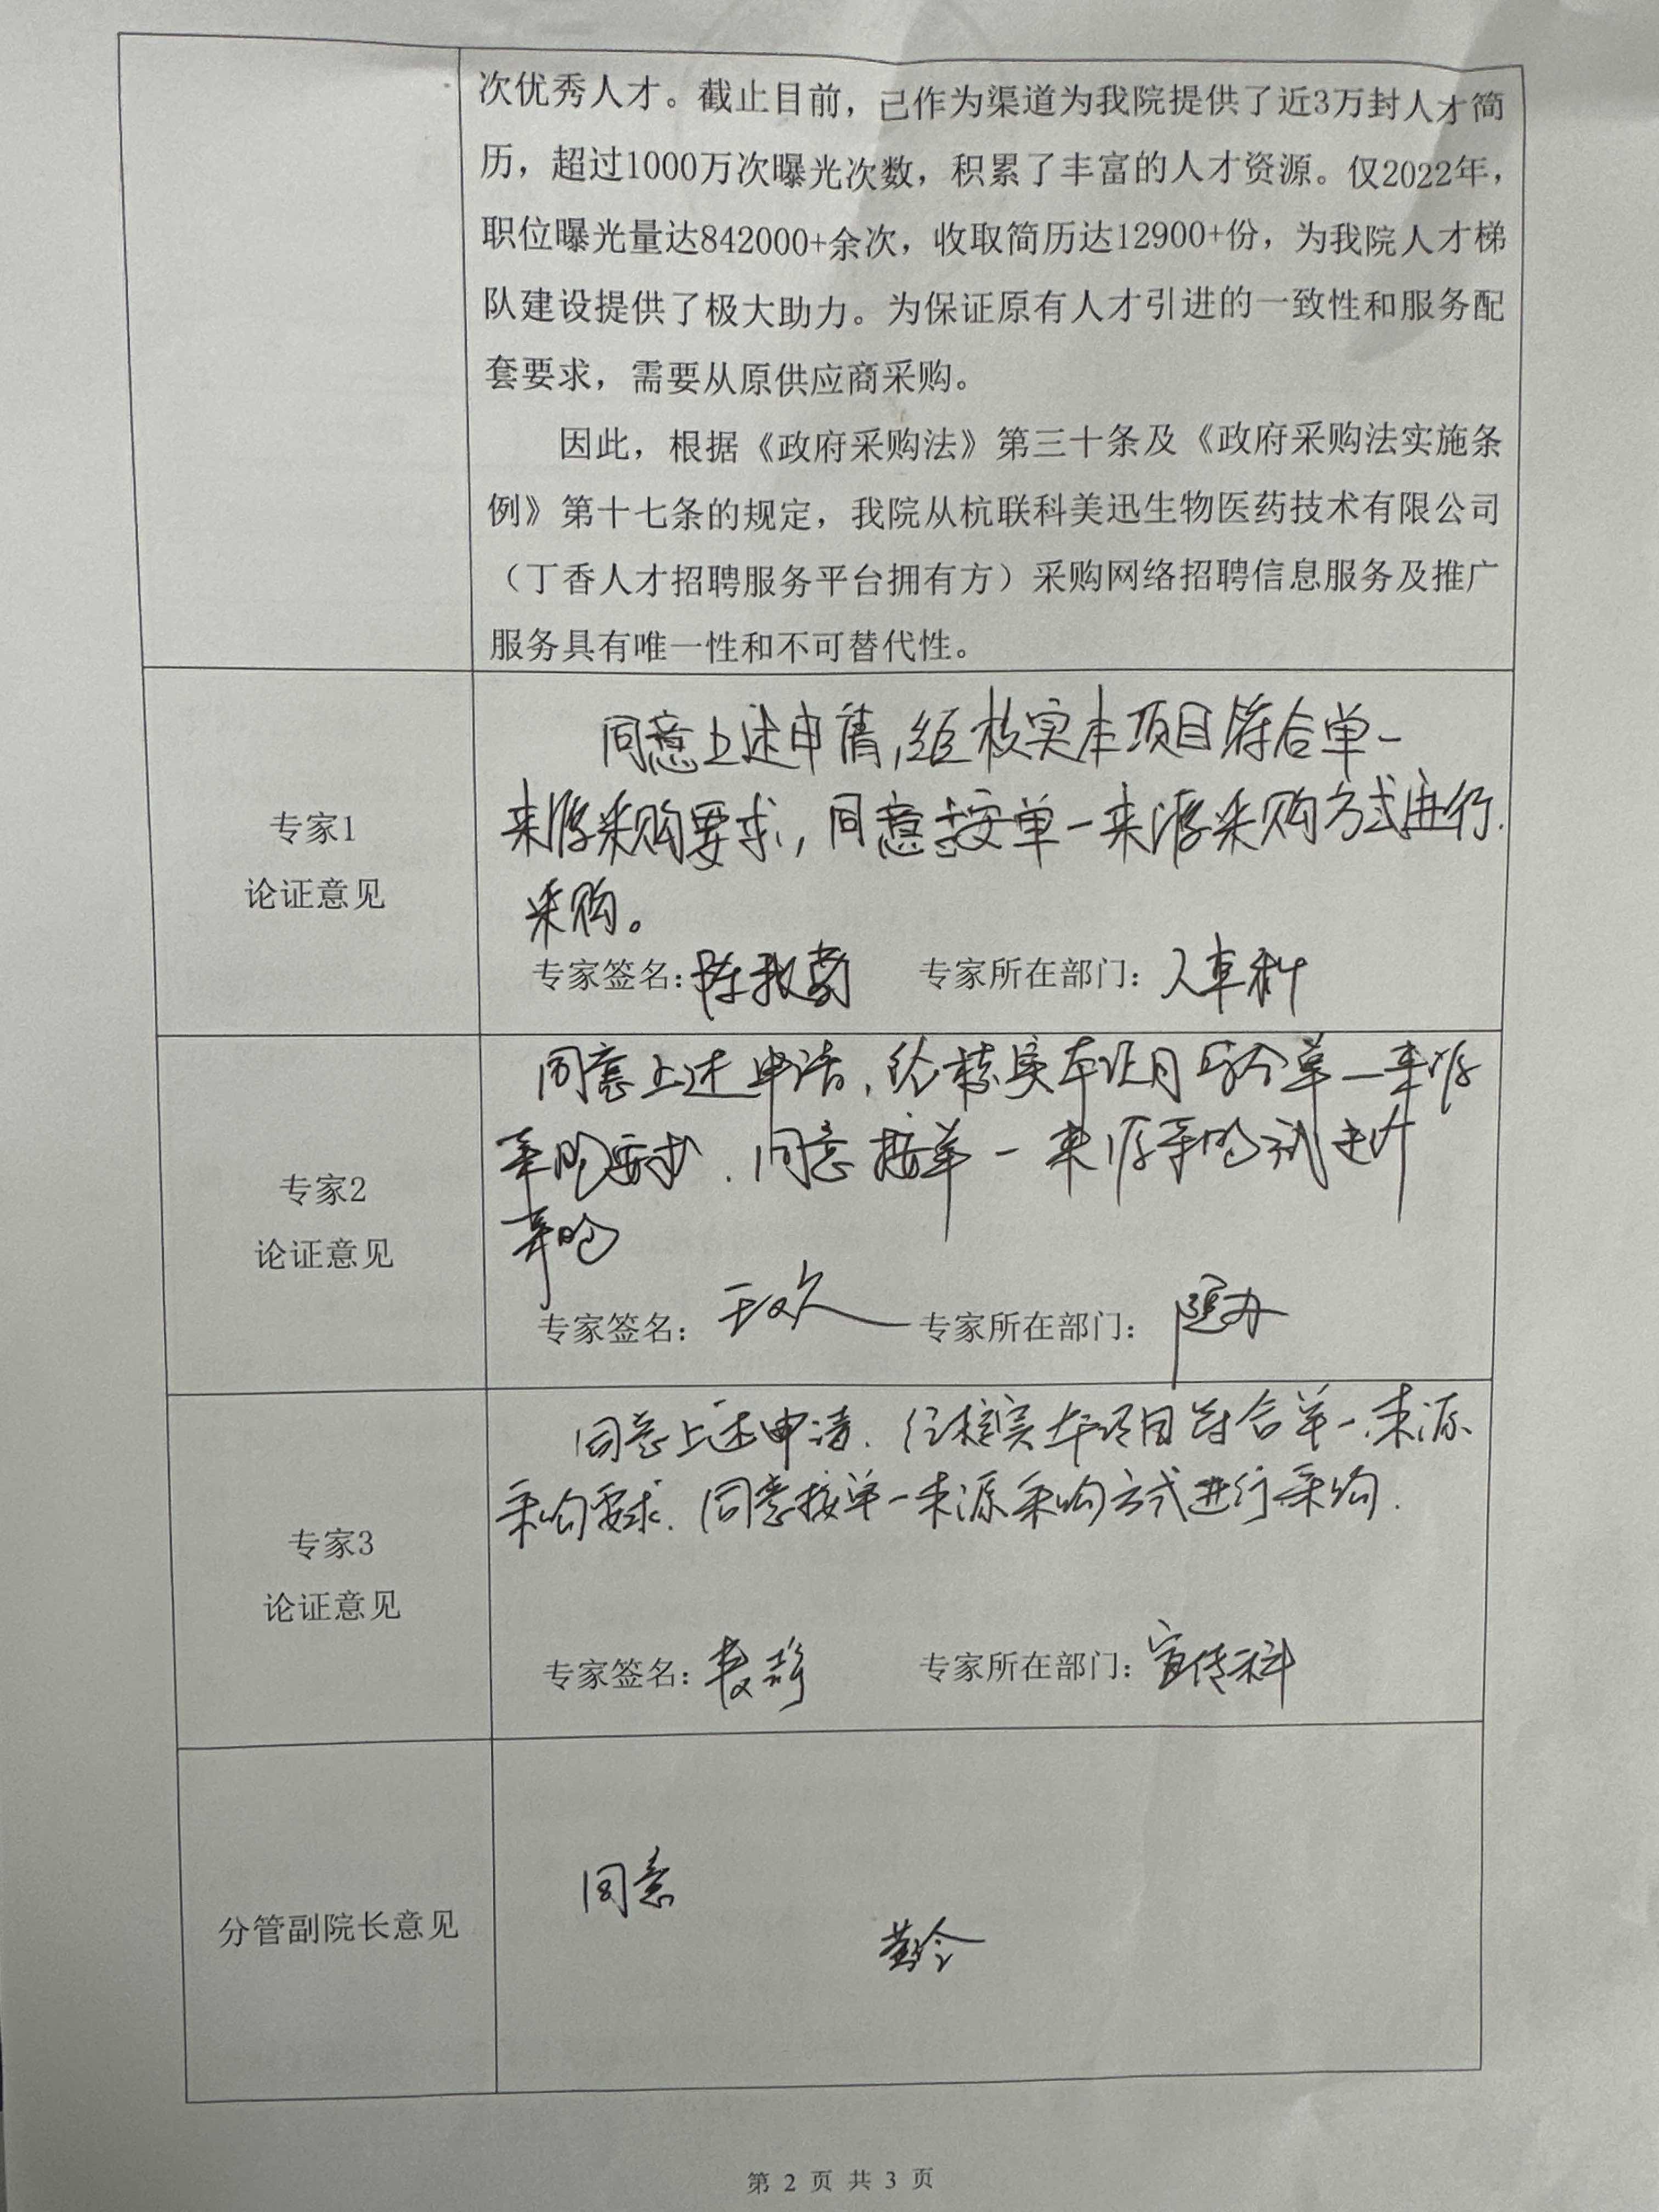 次优秀人才。截止目前，已作为渠道为我院提供了近3万封人才简
历，超过1000万次曝光次数，积累了丰富的人才资源。仅2022年，
职位曝光量达842000+余次，收取简历达12900+份，为我院人才梯
队建设提供了极大助力。为保证原有人才引进的一致性和服务配
套要求，需要从原供应商采购。
因此，根据《政府采购法》第三十条及《政府采购法实施条
例》第十七条的规定，我院从杭联科美迅生物医药技术有限公司
（丁香人才招聘服务平台拥有方）采购网络招聘信息服务及推广
服务具有唯一性和不可替代性。
专家1
论证意见
同意上述申请，经核实本项目符合单一
来源采购要求，同意按单一来源采购方式进行
采购。
专家签名：陈 专家所在部门：人事科
专家2
论证意见
同意上述申请，经核实本项目符合单一来源
采购要求，同意按单一来源采购方式进行
采购
专家签名： 专家所在部门：院办
专家3
论证意见
同意上述申请，经核实本项目符合单一来源
采购要求，同意按单一来源采购方式进行采购.
专家签名： 专家所在部门：宣传科
分管副院长意见
同意
第 2 页 共 3 页